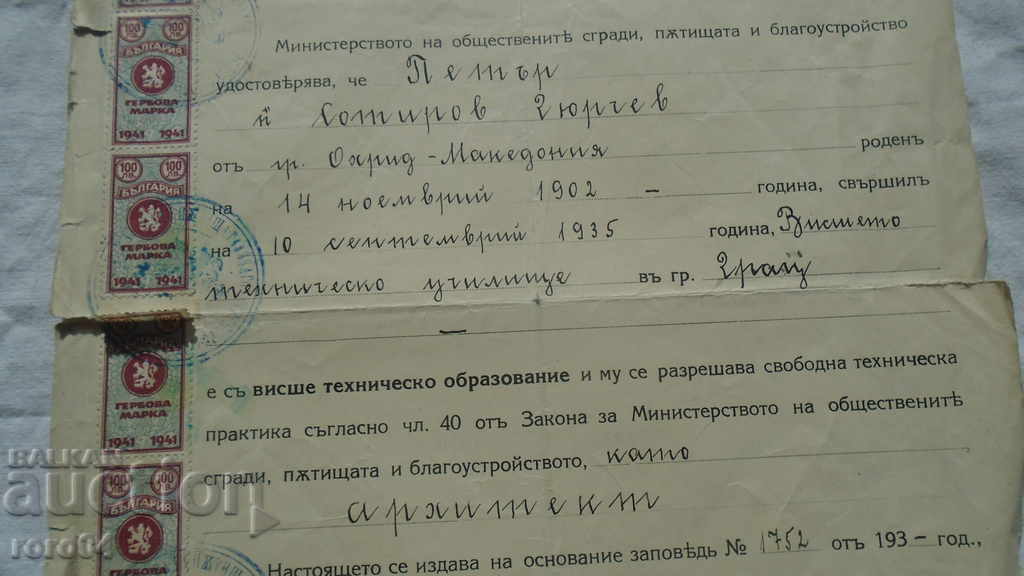 100 100
БЪЛГАРИЯ
ГЕРБОВА
МАРКА
1941 1941
100 100
БЪЛГАРИЯ
ГЕРБОВА
МАРКА
1941 1941
ГЕРБОВА
МАРКА
1941 1941
100 100
БЪЛГАРИЯ
ГЕРБОВА
Министерството на общественитѣ сгради, пѫтищата и благоустройство
удостовѣрява, че Петър
Сотиров Гюрчев
отъ гр. Охрид - Македония роденъ
на 14 ноемврий 1902 - година, свършилъ
на 10 септемврий 1935 година, Висшето
техническо училище въ гр. Грац
—
е съ висше техническо образование и му се разрешава свободна техническа
практика съгласно чл. 40 отъ Закона за Министерството на общественитѣ
сгради, пѫтищата и благоустройството, като
архитект
Настоящето се издава на основание заповѣдь № 1752 отъ 193 - год.,
BALKAN
auction
roro84